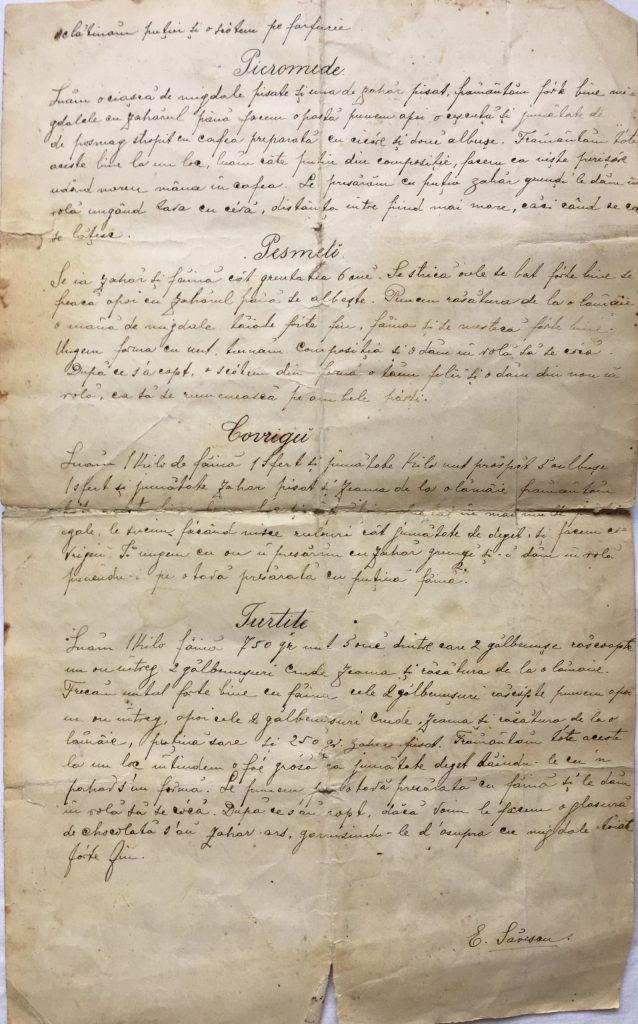 clătinăm puțin și o scótem pe farfurie
Picromede.
Luăm o ciască de migdale pisate și una de zahăr pisat, frământăm fórte bine mi-
gdalele cu zahărul până facem o pastă punem apoi o cescuță și jumătate de
de posmag stropit cu cafea preparată cu cicóre și doué albușe. Frământăm tóte
aceste bine la un loc, luăm câte puțin din compositie, facem ca niște perișóre
udând mereu mâna în cafea. Le presărăm cu puțin zahăr grunți le dăm în
rolă ungând tava cu céră, distanța între fiind mai mare, căci când se coc
se lățesc.
Pesmeti
Se ia zahăr și făină cât greutatea 6 oué. Se strică ouele se bat fórte bine se
freacă apoi cu zahărul până se albește. Punem răsătura de la o lămâie
o mână de migdale tăiate fórte fin, făina și se mestecă fórte bine.
Ungem forma cu unt, turnăm compositia și o dăm în rolă să se cócă.
După ce s'a copt, o scótem din formă o tăem felii și o dăm din nou în
rolă, ca să se rumenească pe ambele părți.
Covrigii
Luăm 1 Kilo de făină 1 sfert și jumătate Kilo unt próspăt 5 oulbușe
1 sfert și jumătate zahăr pisat și zeama de la o lămâie frământăm
egale, le sucim făcând nisce rulouri cât jumătate de deget, și facem co-
vrigii. Îi ungem cu ou îi presărăm cu zahăr grunți și-i dăm în rolă
punendu-i pe o tavă presărată cu puțină făină.
Turtite
Luăm 1 Kilo făină 750 gr unt 5 oué dintre care 2 gălbenușe răscoapte
un ou întreg, 2 gălbenușuri crude zeama și răsătura de la o lămâie.
Frecăm untul fórte bine cu făina cele 2 gălbenușuri răscópte punem apoi
un ou întreg, apoi cele 2 gălbenușuri crude, zeama și răsătura de la o
lămâie, puțină sare și 250 gr zahăr pisat. Frământăm tóte aceste
la un loc întindem o fóe grósă ca jumătate deget tăindu-le cu un
pahar s'au formă. Le punem pe o tavă presărată cu făină și le dăm
în rolă să se cócă. După ce s'au copt, dăcă voim le facem o glasură
de chocolată s'au zahăr ars, garnisindu-le d'asupra cu migdale tăiate
fórte fin.
E. Săvescu.